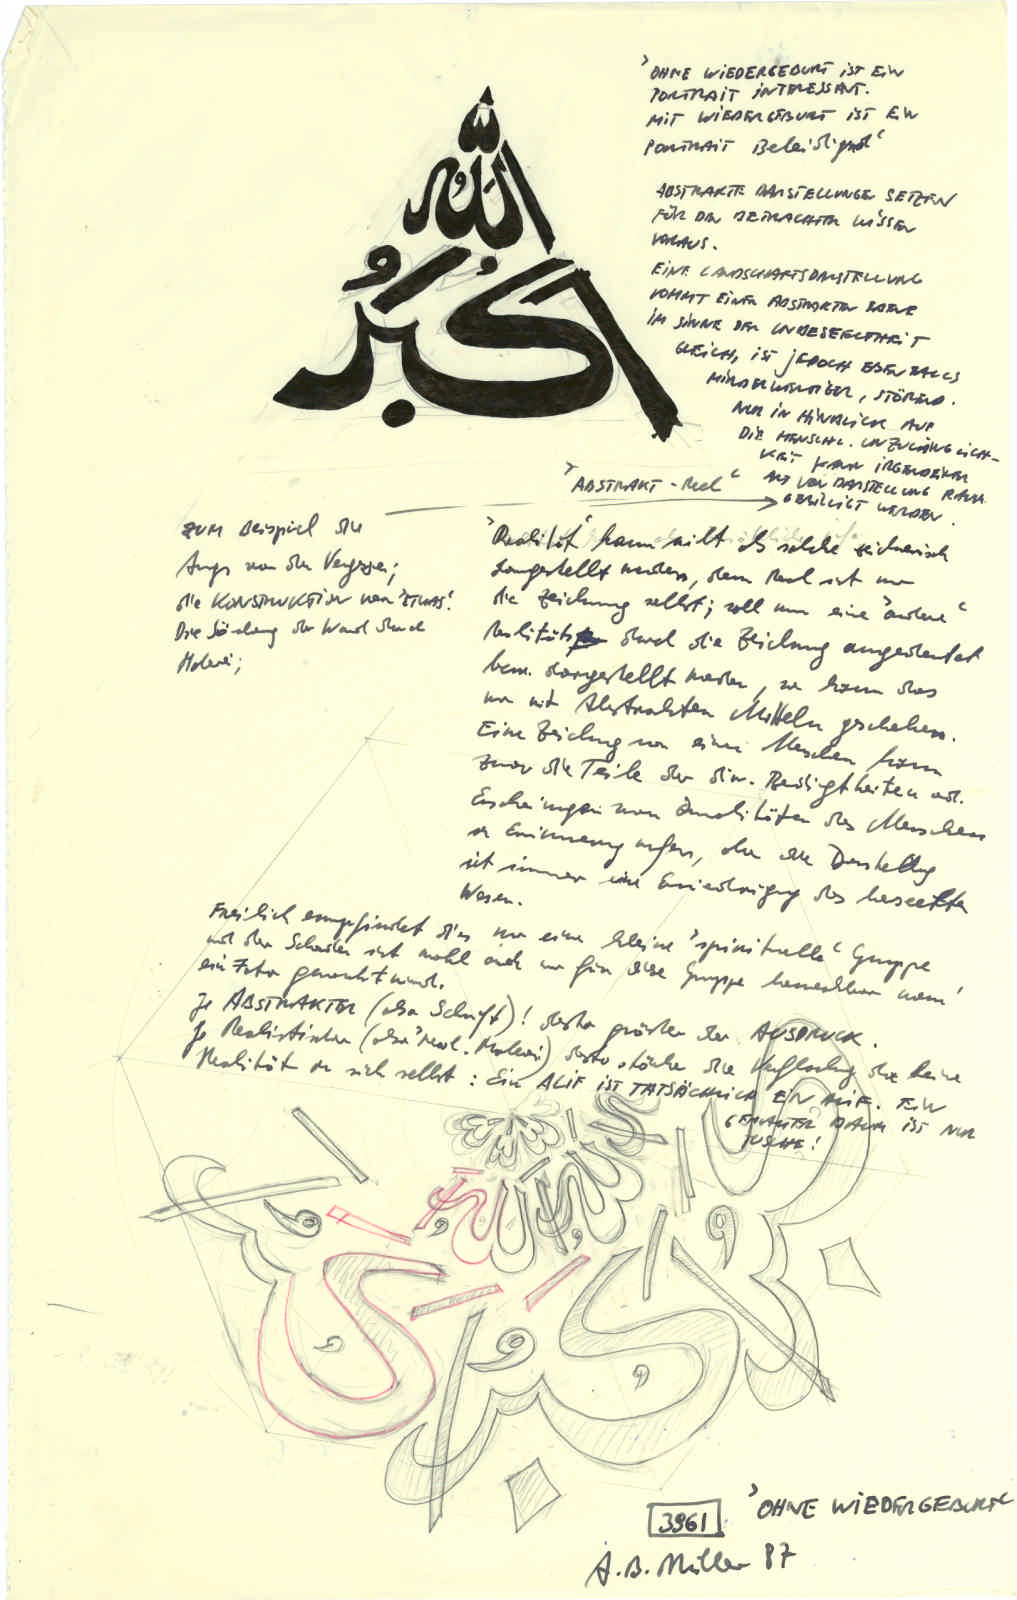 الله
أكبر
"OHNE WIEDERGEBURT IST EIN
PORTRAIT INTERESSANT.
MIT WIEDERGEBURT IST EIN
PORTRAIT Beleidigend"
ABSTRAKTE DARSTELLUNGEN SETZEN
FÜR DEN BETRACHTER WISSEN
VORAUS.
EINE LANDSCHAFTSDARSTELLUNG
KOMMT EINER ABSTRAKTEN EBENE
IM SINNE DER UNBESEELTHEIT
GLEICH, IST JEDOCH EBENFALLS
MINDERWERTIGER, STÖREND.
NUR IN HINBLICK AUF
DIE MENSCHL. UNZULÄNGLICH-
KEIT KANN IRGENDEINER
ART VON DARSTELLUNG RAUM
GEBILLIGT WERDEN.
"ABSTRAKT - Real"
ZUM Beispiel die
Angst vor dem Vergessen;
die KONSTRUKTION von "ETWAS".
Die der Wand durch
Malerei;
"Realität" kann nicht als solche zeichnerisch
dargestellt werden, denn Real ist nur
die Zeichnung selbst; soll nun eine "andere"
Realität durch die Zeichnung angedeutet
bzw. dargestellt werden, so kann das
nur mit Abstrakten Mitteln geschehen.
Eine Zeichnung von einem Menschen kann
zwar die Teile der div. od.
Erscheinungen von des Menschen
in Erinnerung rufen, aber die Darstellung
ist immer eine Erniedrigung des beseelten
Wesens.
Freilich empfindet dies nur eine kleine "spirituelle" Gruppe
und der Schaden ist wohl auch nur für diese Gruppe wenn
ein Foto gemacht wird.
Je ABSTRAKTER (also Schrift)! desto größer der AUSDRUCK.
Je Realistischer (also "real. Malerei) desto stärker die der keine
Realität an sich selbst: Ein ALIF IST TATSÄCHLICH EIN ALIF. EIN
GEMALTER BAUM IST NUR
TUSCHE!
3961
"OHNE WIEDERGEBURT"
A.B. Müller 87